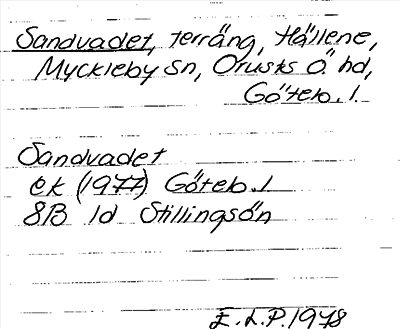 Sandvadet, terräng, Hällene,
Myckleby sn, Orusts Ö hd,
Göteb. l.
Sandvadet
ek (1977) Göteb. l
8B 1d Stillingsön
E.L.P. 1978